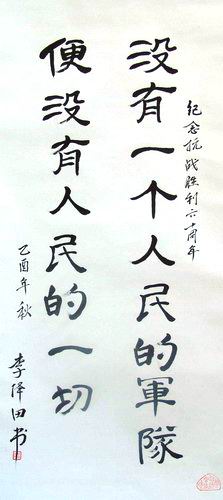 纪念抗战胜利六十周年
没有一个人民的軍隊
便没有人民的一切
乙酉年秋
李泽田书